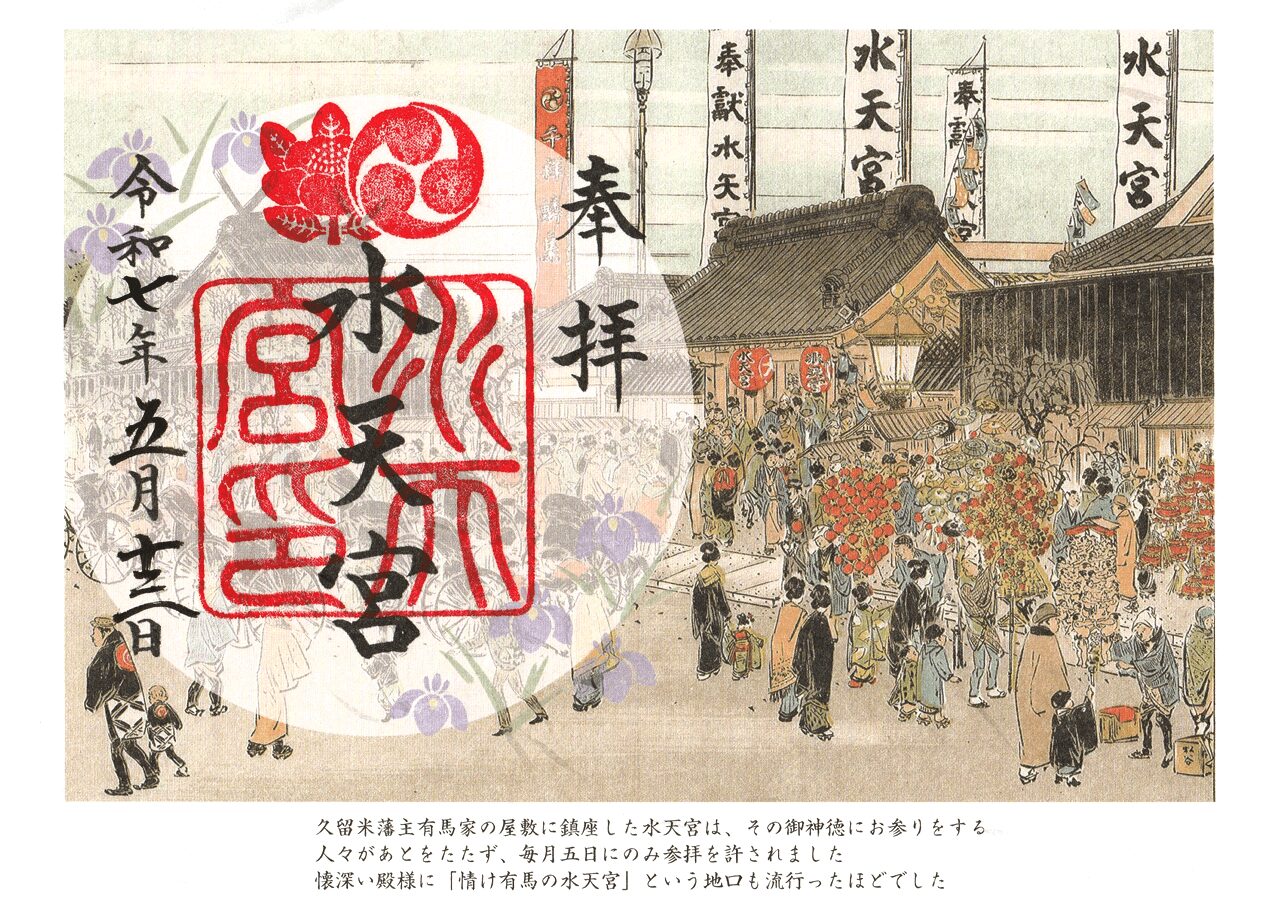 奉拝
水天宮
水天宮印
令和七年五月十三日
水天宮
水天宮
奉獻水天宮
奉獻
水天宮
水天宮
久留米藩主有馬家の屋敷に鎮座した水天宮は、その御神徳にお参りをする
人々があとをたたず、毎月五日にのみ参拝を許されました
懐深い殿様に「情け有馬の水天宮」という地口も流行ったほどでした